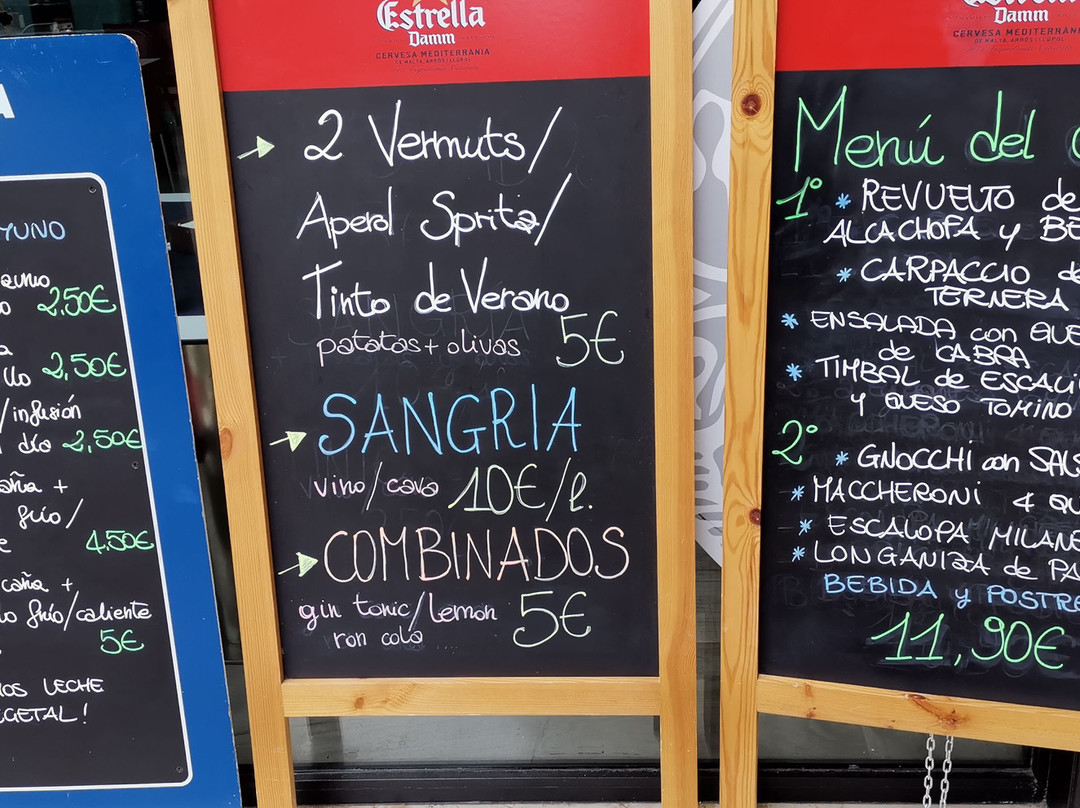 A
MUNO
2,50€
2,50€
/infusión
día 2,50€
caña +
frío/
4,50€
caña +
frío/caliente
5€
LECHE
VEGETAL!
Estrella
Damm
CERVESA MEDITERRÀNIA
DE MALTA, ARRÒS I LLÚPOL
2 Vermuts/
Aperol Spritz/
Tinto de Verano
patatas + olivas 5€
SANGRIA
vino/cava 10€/l.
COMBINADOS
gin tonic/lemon 5€
ron cola
Estrella
Damm
CERVESA MEDITERRÀNIA
DE MALTA, ARRÒS I LLÚPOL
Menú del
1º * REVUELTO de
ALCACHOFA y
* CARPACCIO de
TERNERA
* ENSALADA con QUE
de CABRA
* TIMBAL de ESCALI
y QUESO TOMINO
2º * GNOCCHI con SALS
* MACCHERONI 4 QU
* ESCALOPA MILANE
* LONGANIZA de PA
BEBIDA y POSTRE
11,90€